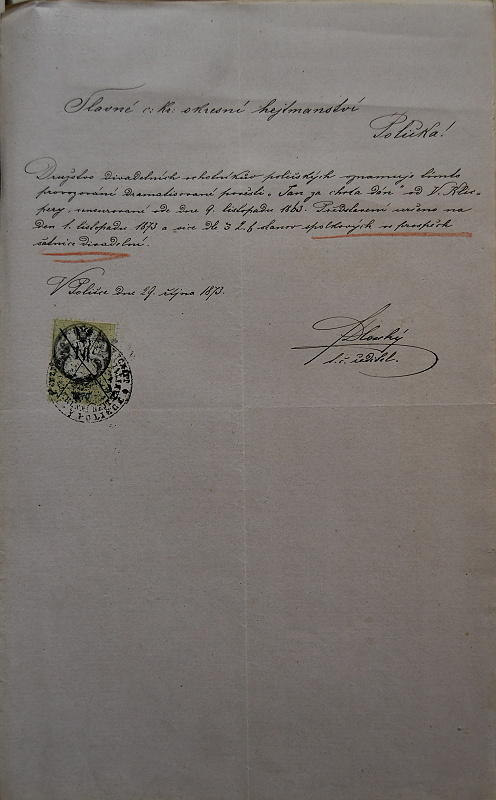 Slavné c. kr. okresní hejtmanství
Polička!
Družstvo divadelních ochotníkův poličských oznamuje tímto
provozování dramatisované pověsti „Jan za chrta dán" od V. Klic-
pery, censurované ode dne 9. listopadu 1863. Představení určeno na
den 1. listopadu 1873 a sice dle § 2 stanov spolkových ve prospěch
šatnice divadelní.
V Poličce dne 29. října 1873.
t. č. ředitel.